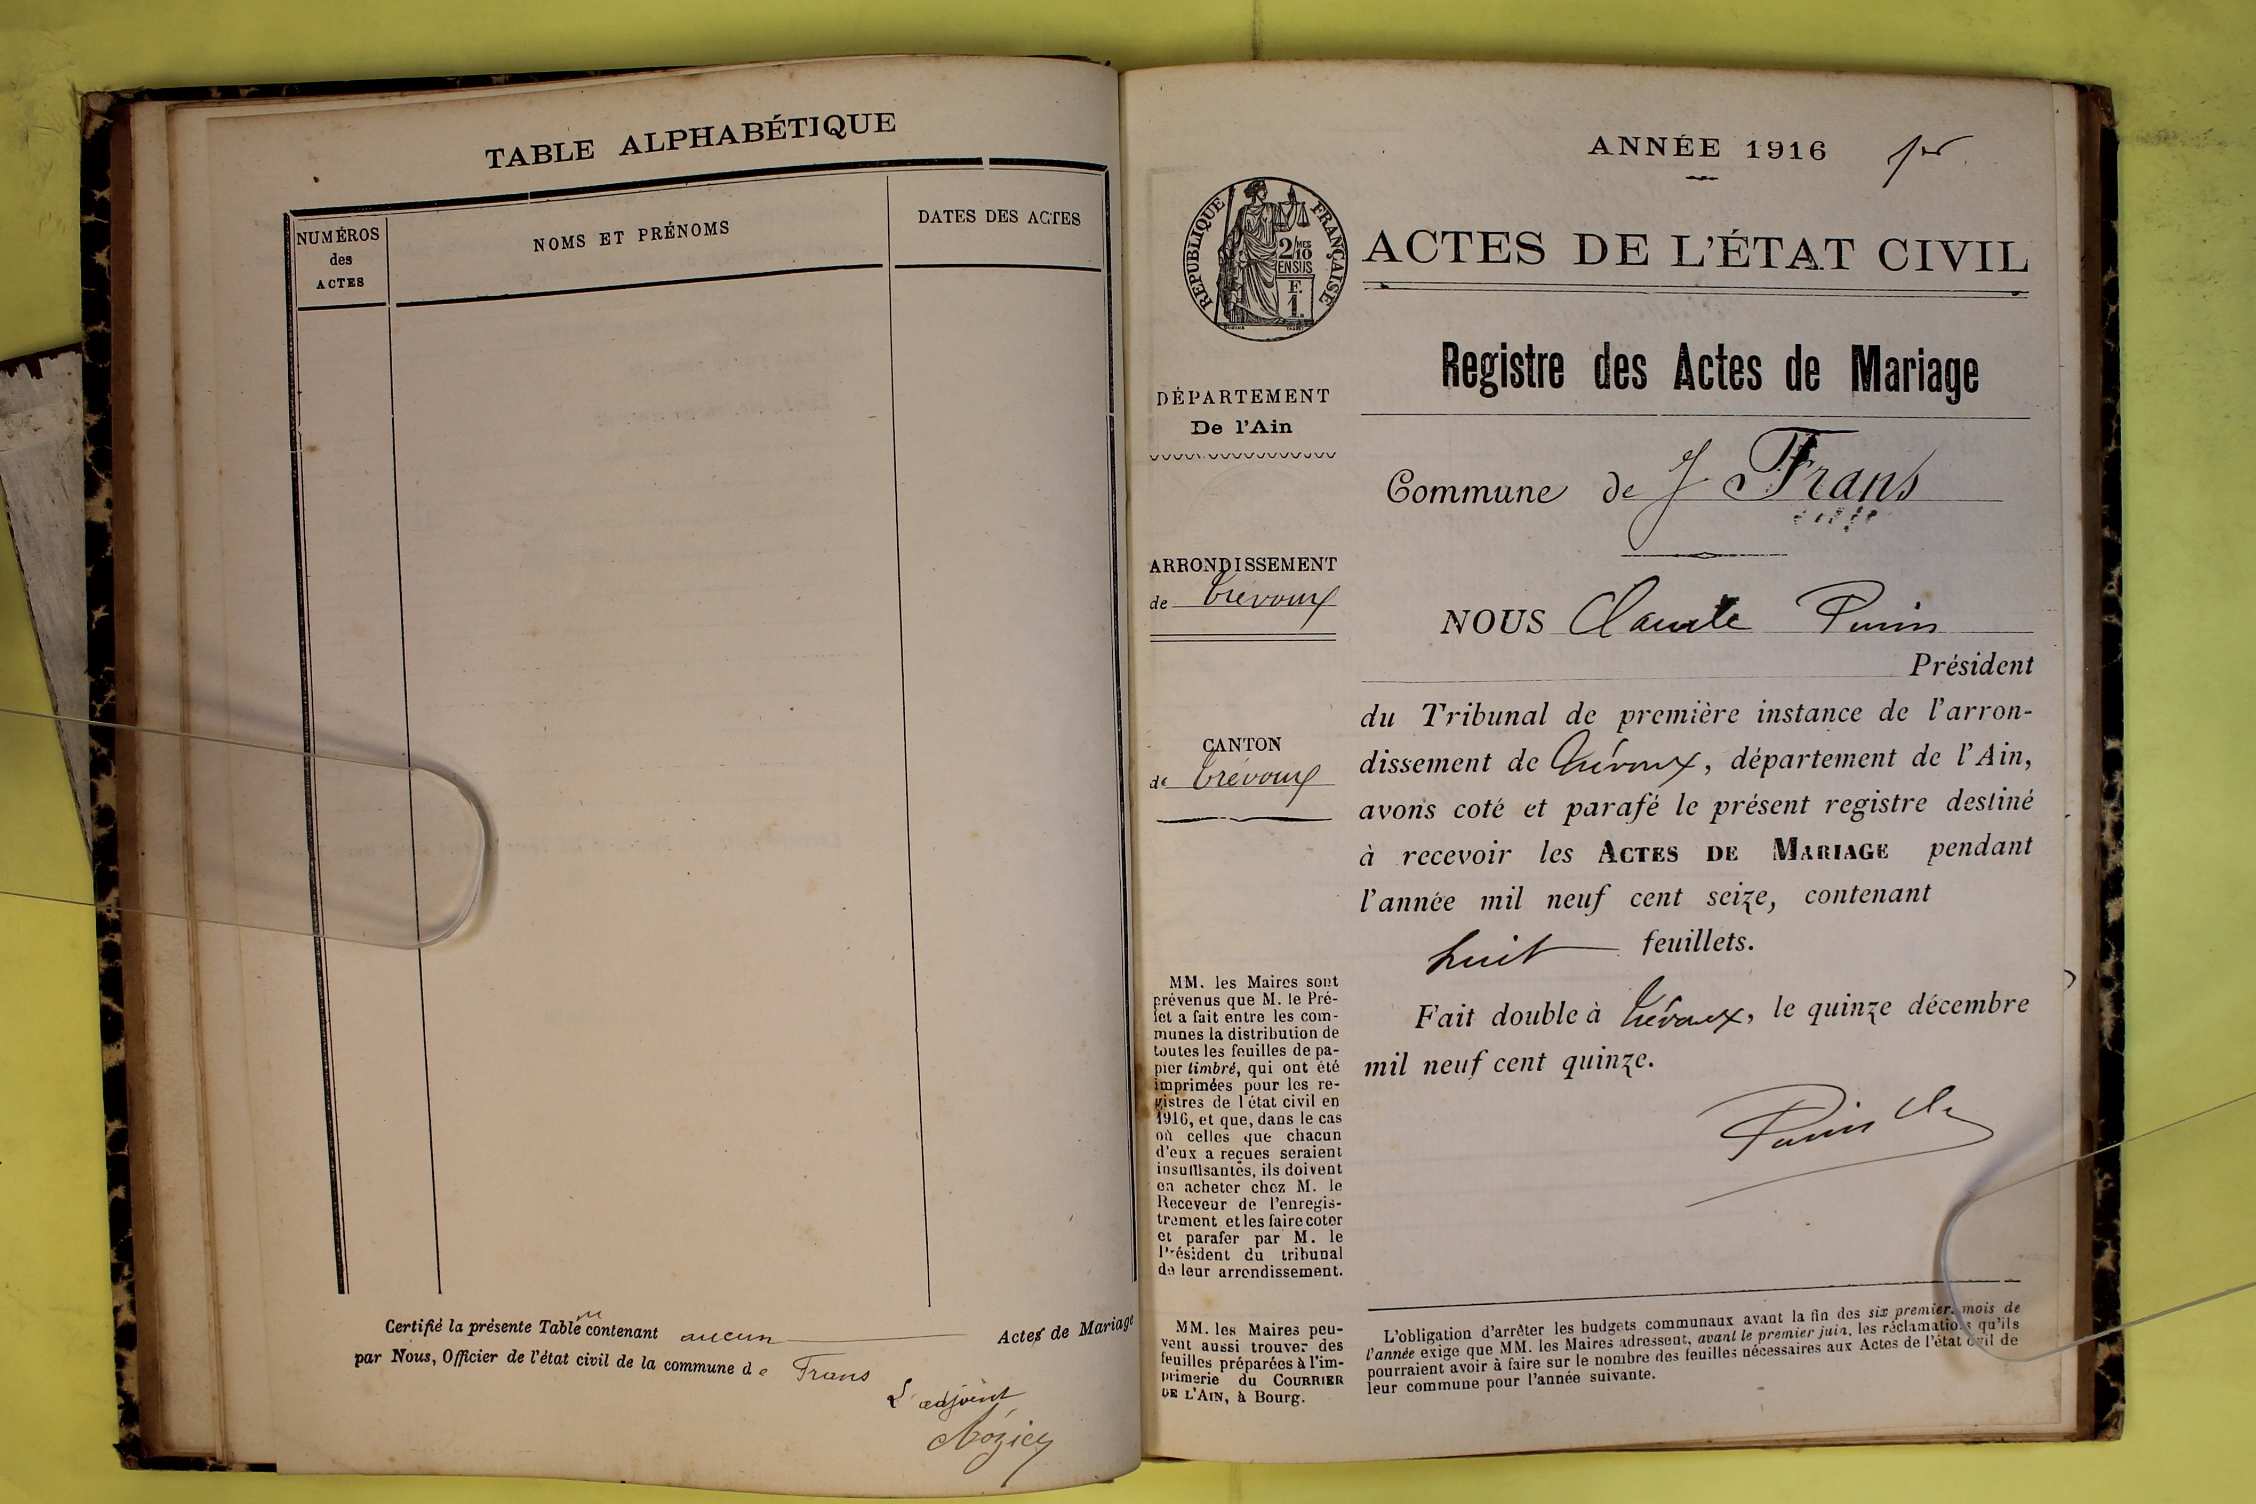 TABLE ALPHABÉTIQUE
NUMÉROS
des
ACTES
NOMS ET PRÉNOMS
DATES DES ACTES
Certifié la présente Table ne contenant aucun Actes de Mariage
par Nous, Officier de l'état civil de la commune de Frans
L'adjoint
ANNÉE 1916
1er
RÉPUBLIQUE FRANÇAISE
2/10
MES
EN SUS
F.
1.
ACTES DE L'ÉTAT CIVIL
Registre des Actes de Mariage
DÉPARTEMENT
De l'Ain
ARRONDISSEMENT
de Trévoux
CANTON
de Trévoux
MM. les Maires sont
prévenus que M. le Pré-
fet a fait entre les com-
munes la distribution de
toutes les feuilles de pa-
pier timbré, qui ont été
imprimées pour les re-
gistres de l'état civil en
1916, et que, dans le cas
où celles que chacun
d'eux a reçues seraient
insuffisantes, ils doivent
en acheter chez M. le
Receveur de l'enregis-
trement et les faire coter
et parafer par M. le
Président du tribunal
de leur arrondissement.
MM. les Maires peu-
vent aussi trouver des
feuilles préparées à l'im-
primerie du COURRIER
DE L'AIN, à Bourg.
Commune de Frans
NOUS Claude
Président
du Tribunal de première instance de l'arron-
dissement de Trévoux, département de l'Ain,
avons coté et parafé le présent registre destiné
à recevoir les ACTES DE MARIAGE pendant
l'année mil neuf cent seize, contenant
huit feuillets.
Fait double à Trévoux, le quinze décembre
mil neuf cent quinze.
L'obligation d'arrêter les budgets communaux avant la fin des six premiers mois de
l'année exige que MM. les Maires adressent, avant le premier juin, les réclamations qu'ils
pourraient avoir à faire sur le nombre des feuilles nécessaires aux Actes de l'état civil de
leur commune pour l'année suivante.